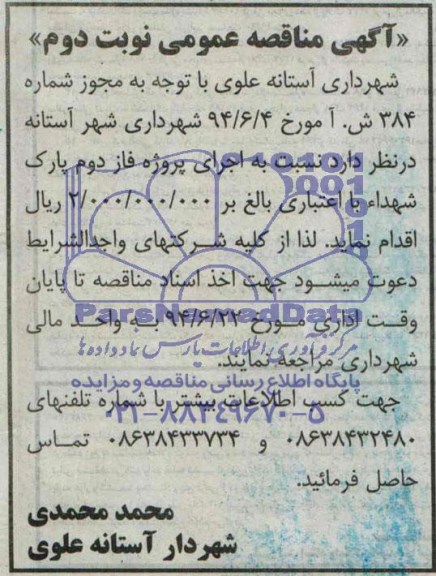 «آگهی مناقصه عمومی نوبت دوم»
شهرداری آستانه علوی با توجه به مجوز شماره
۳۸۴ ش. آ مورخ ۹۴/۶/۴ شهرداری شهر آستانه
درنظر دارد نسبت به اجرای پروژه فاز دوم پارک
شهداء با اعتباری بالغ بر ۲/۰۰۰/۰۰۰/۰۰۰ ریال
اقدام نماید. لذا از کلیه شرکتهای واجدالشرایط
دعوت میشود جهت اخذ اسناد مناقصه تا پایان
وقت اداری مورخ ۹۴/۶/۲۲ به واحد مالی
ParsNamadData
مرکز فرآوری اطلاعات پارس نماد داده ها
شهرداری مراجعه نمایند.
پایگاه اطلاع رسانی مناقصه و مزایده
جهت کسب اطلاعات بیشتر با شماره تلفنهای
۰۲۱-۸۸۳۴۹۶۷۰-۵
۰۸۶۳۸۴۳۲۴۸۰ و ۰۸۶۳۸۴۳۳۷۳۴ تماس
حاصل فرمائید.
محمد محمدی
شهردار آستانه علوی